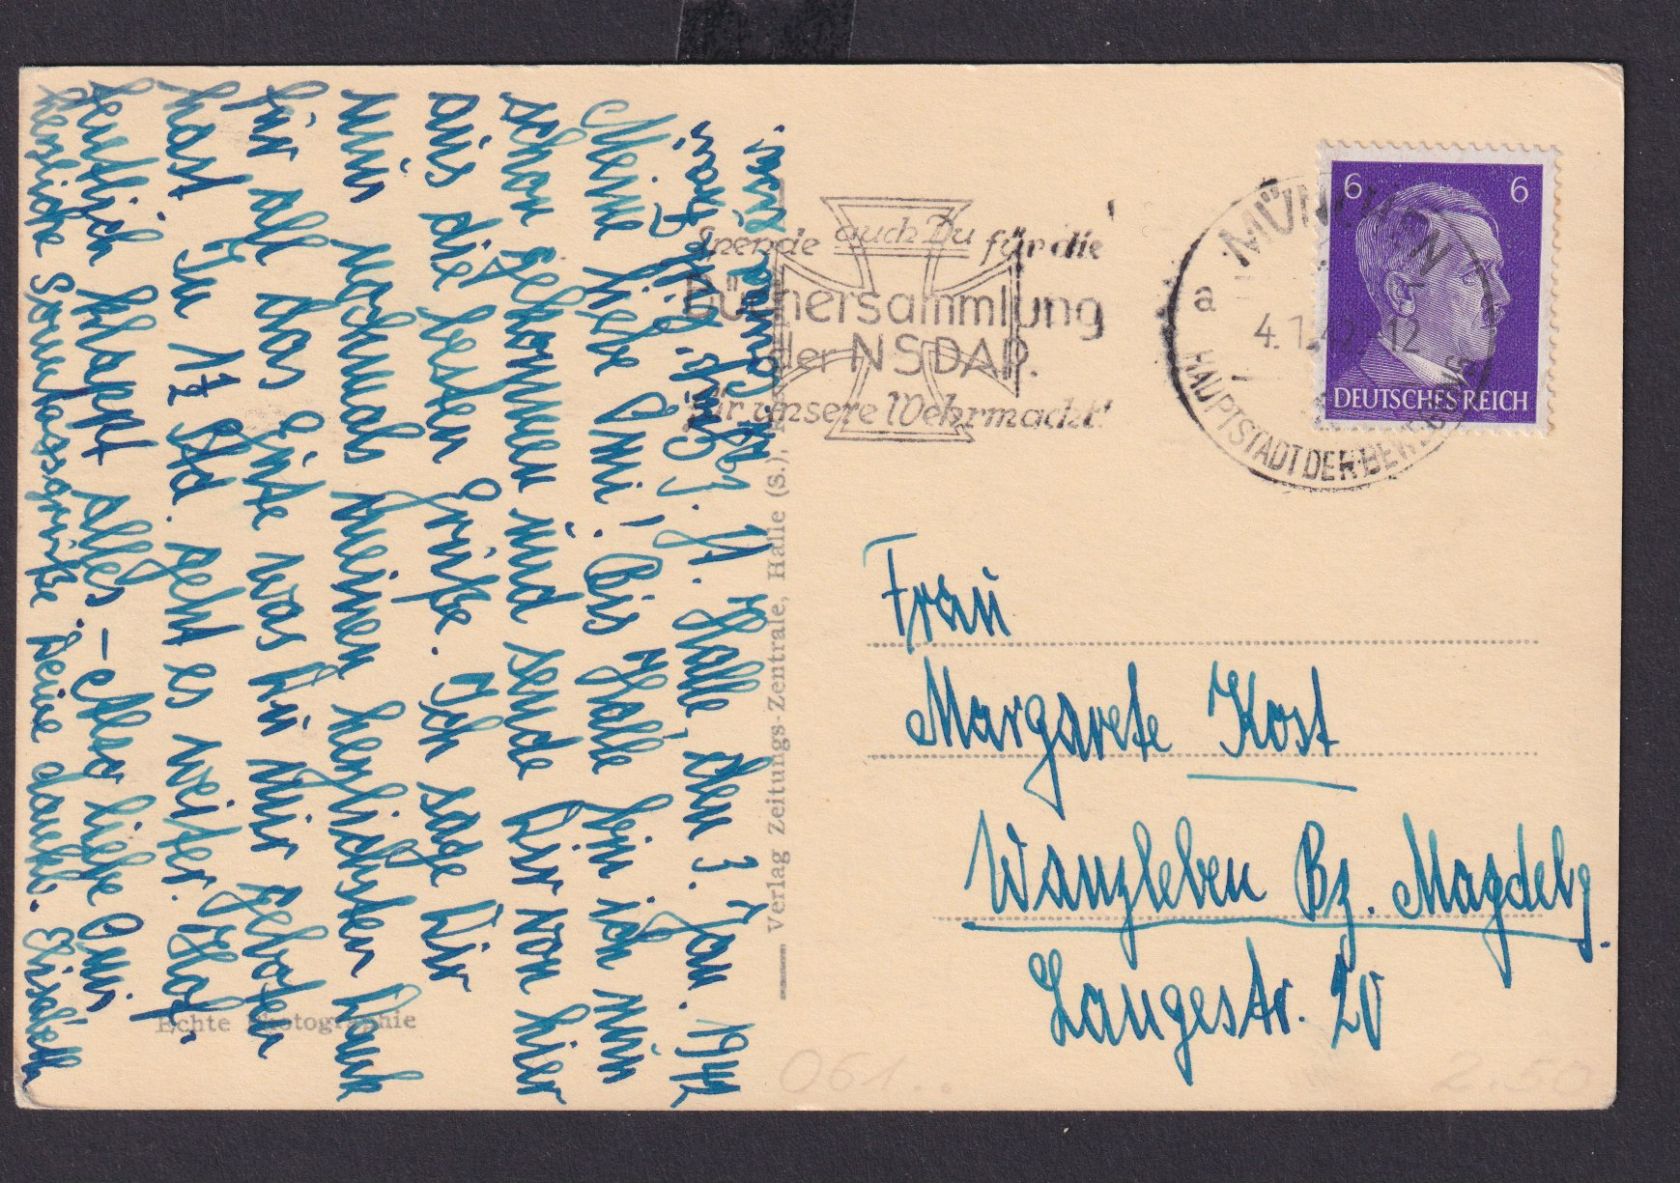 Halle, den 3. Jan. 1942
Meine liebe Omi! Bis Halle bin ich nun
schon gekommen und sende Dir von hier
aus die besten Grüße. Ich sage Dir
nun nochmals meinen herzlichsten Dank
für all das Gute was Du mir geboten
hast. In 1½ Std. geht es weiter. Hof-
fentlich klappt alles. – Also liebe Omi
herzliche Sonntagsgrüße Deine dankb. Elisabeth
Verlag Zeitungs-Zentrale, Halle (S.),
Echte Photographie
Spende auch Du für die
Büchersammlung
der NSDAP.
für unsere Wehrmacht!
MÜNCHEN
a
4.1.42 12
HAUPTSTADT DER BEWEGUNG
6 6
DEUTSCHES REICH
Frau
Margarete Kost
Wanzleben Bz. Magdebg.
Langestr. 20
061..
2.50